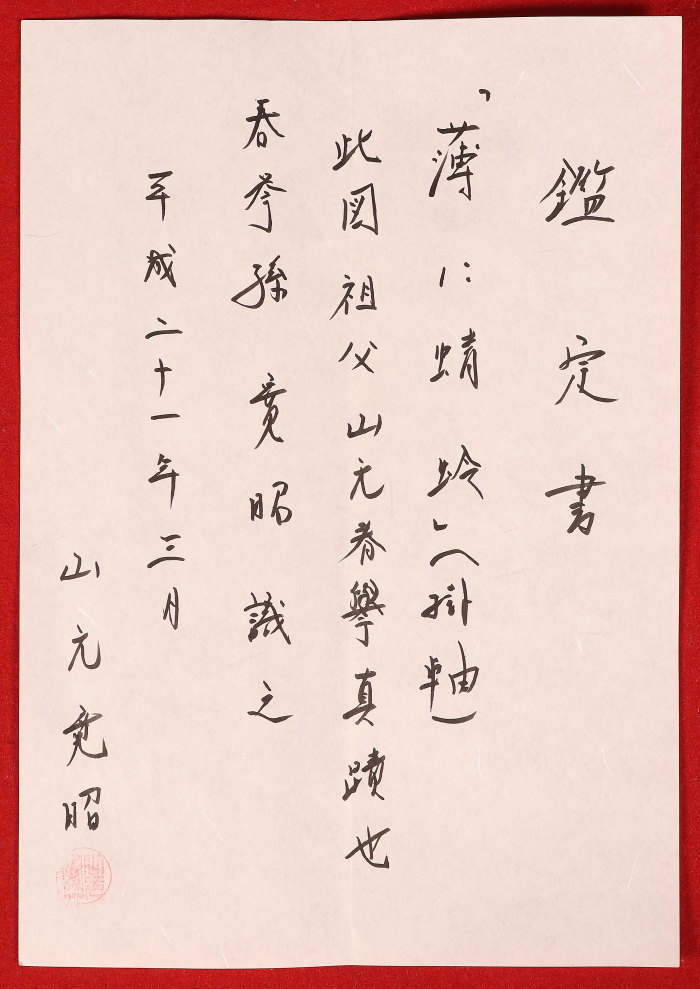 鑑定書
「薄に蜻蛉」(掛軸)
此図祖父山元春擧真蹟也
春挙孫寛昭識之
平成二十一年三月
山元寛昭